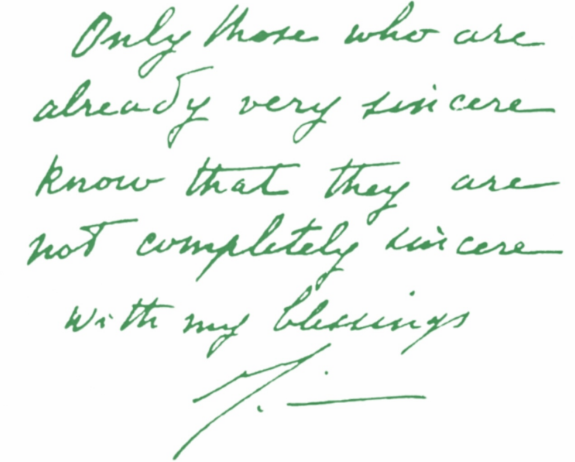 Only those who are
already very sincere
know that they are
not completely sincere
with my blessings